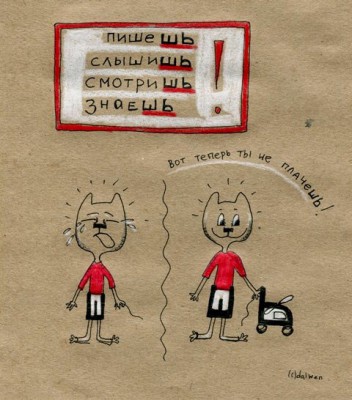 пишешь
слышишь
смотришь
знаешь
!
Вот теперь ты не плачешь!
(c)dalwen